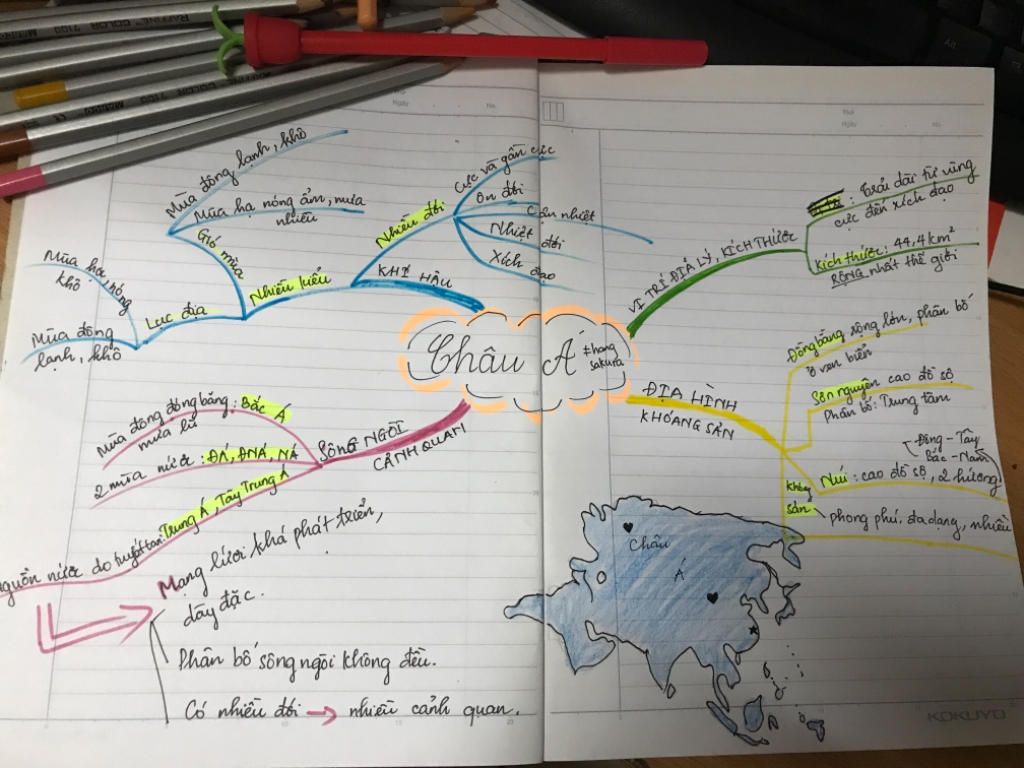 Châu Á
#hang
sakura
KHÍ HẬU
Nhiều đới
Cực và gần cực
Ôn đới
Cận nhiệt
Nhiệt đới
Xích đạo
Nhiều kiểu
Gió mùa
Mùa đông lạnh, khô
Mùa hạ nóng ẩm, mưa
nhiều
Lục địa
Mùa hạ, nóng
khô
Mùa đông
lạnh, khô
VỊ TRÍ ĐỊA LÝ, KÍCH THƯỚC
: Trải dài từ vùng
cực đến xích đạo
Kích thước: 44,4 km²
RỘNG nhất thế giới
ĐỊA HÌNH
KHOÁNG SẢN
Đồng bằng rộng lớn, phân bố
ở ven biển
Sơn nguyên cao đồ sộ
Phân bố: Trung tâm
Núi: cao đồ sộ, 2 hướng
Đông - Tây
Bắc - Nam
Khoáng
sản
phong phú, đa dạng, nhiều
SÔNG NGÒI
CẢNH QUAN
Mùa đông đóng băng: Bắc Á
mưa lũ
2 mùa nước: ĐÁ, ĐNÁ, NÁ
Nguồn nước do tuyết tan: Trung Á, Tây Trung Á
Mạng lưới khá phát triển,
dày đặc.
Phân bố sông ngòi không đều.
Có nhiều đới → nhiều cảnh quan.
Châu
Á
KOKUYO